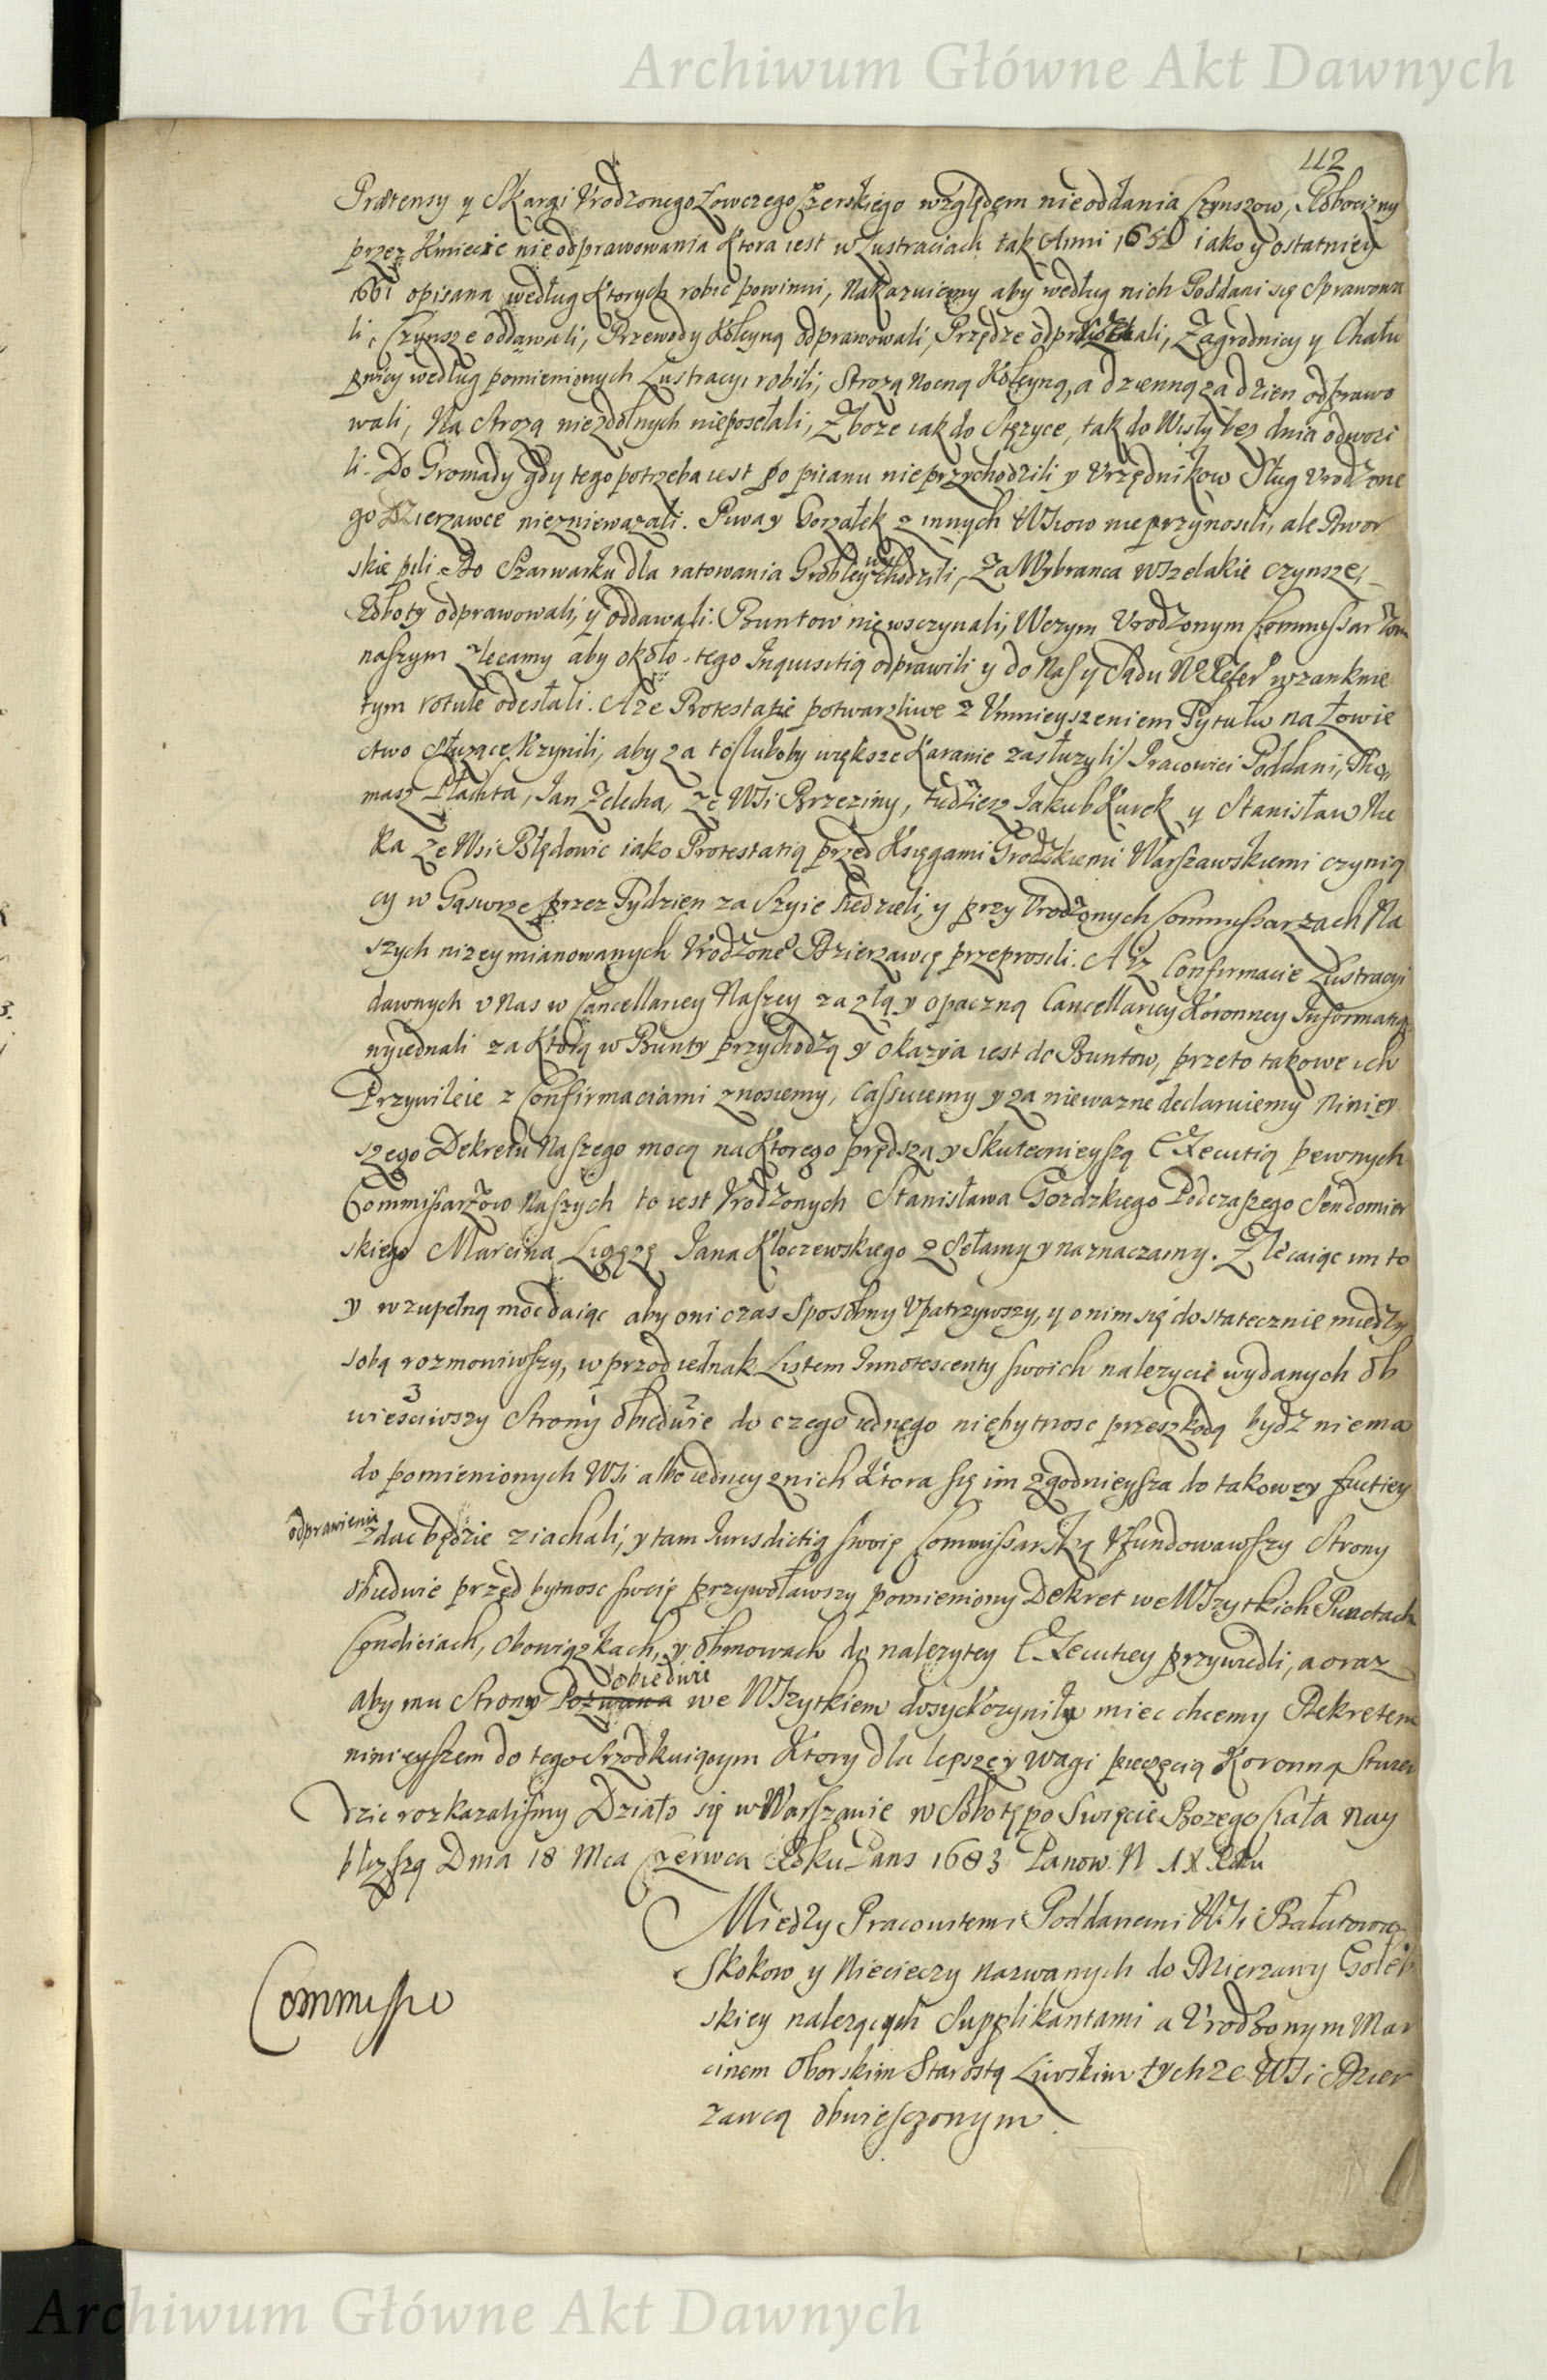 Archiwum Główne Akt Dawnych
112
Prætensy y Skargi Urodzonego Łowczego Czerskiego względem nieoddania Czynszow, Robocizny
przez Kmiecie nieodprawowania ktora iest w Lustraciach tak Anni 1652 iako y ostatniey
1661 opisana według ktorych robic powinni, Nakazuiemy aby według nich Poddani się Sprawowa
li, Czynsze oddawali, Przewody koleyną odprawowali, Przędze odprzędali, Zagrodnicy y Chału
pnicy według pomienionych Lustracyi robili, Strozą Nocną Koleyną, a dzienną za dzien odprawo
wali, Na Strozą niezdolnych nieposełali, Zboze iak do Stęzyce, tak do Wisły bez dnia odwozi
li. Do Gromady gdy tego potrzeba iest po piianu nieprzychodzili y Urzędnikow Sług Urodzone
go Dzierzawce nieznieważali. Piwa y Gorzałek z innych Wsiow nieprzynosili, ale Dwor
skie pili. Do Szarwarku dla ratowania Grobley wychodzili, Za Wybranca wszelakie czynsze,
Roboty odprawowali, y oddawali: Buntow niewsczynali, Wczym Urodzonym Commissarzom
naszym zlecamy aby około tego Inquisitią odprawili y do Nas y Sądu N Refer wzamknie
tym rotule odesłali. A ze Protestatie potwarzliwe z Umnieyszeniem Tytułu na Łowie
ctwo słuzące uczynili, aby za to / luboby większe karanie zasłuzyli / Pracowici Poddani, Tho
masz Płachta, Jan Zelecha, ze Wsi Brzeziny, tudziesz Jakub Kurek y Stanisław Ku
ka ze Wsi Błędowic iako Protestatią przed Księgami Grodzkiemi Warszawskiemi czynią
cy w Gąsiorze przez Tydzien za Szyie siedzieli, y przy Urodzonych Commissarzach Na
szych nizey mianowanych Urodzone Dzierzawcę przeprosili. A iz Confirmacie Lustracyi
dawnych u Nas w Cancellariey Naszey za złą y opaczną Cancellariey Koronney Informatią
wyiednali za ktorą w Bunty przychodzą y okazyia iest do Buntow, przeto takowe ich
Przywileie z Confirmaciami znosiemy, Cassuiemy y za niewazne declaruiemy Niniey
szego Dekretu Naszego mocą na ktorego prędszą y skutecznieyszą Exekutią pewnych
Commissarzow Naszych to iest Urodzonych Stanisława Gozdzkiego Podczaszego Sendomier
skiego Marcina Ligęzę Jana Kłoczewskiego zsełamy y naznaczamy. Zlecaiąc im to
y wzupełną moc daiąc aby oni czas sposobny Upatrzywszy, y o nim się dostatecznie między
sobą rozmowiwszy, w przod iednak Listem Innotescenty swoich nalezycie wydanych ob
wiesciwszy Strony obiedwie do czego iednego niebytnosc przeszkodą bydz niema
do pomienionych Wsi albo iedney z nich ktora się im zgodnieysza do takowey fuctiey
odprawienia zdac będzie ziachali, y tam Iurisdictią swoię Commissarską Ufundowawszy Strony
obiedwie przed bytnosc swoię przywoławszy pomieniony Dekret we Wszytkich Punctach
Condiciach, Obowiązkach, y obmowach do nalezytey Exekutiey przywiedli, a oraz
aby mu Strony Pozwana obiedwie we Wszytkiem dosyc uczyniły miec chcemy Dekretem
ninieyszem do tego srzodkuiącym Ktory dla lepszey wagi pieczęcią Koronną stwier
dzic rozkazalismy Działo się w Warszawie w Sobotę po Swięcie Bozego Ciała nay
blizszą Dnia 18 Mca Czerwca Roku Pans 1683 Panow. N IX Roku
Commissio
Między Pracowitemi Poddanemi Wsi Bałutowa
Skokow y Niecieczy nazwanych do Dzierzawy Goleb
skiey nalezących Supplikantami a Urodzonym Mar
cinem Oborskim Starostą Liwskim tychze Wsi Dzier
zawcą obwiesczonym.
Archiwum Główne Akt Dawnych